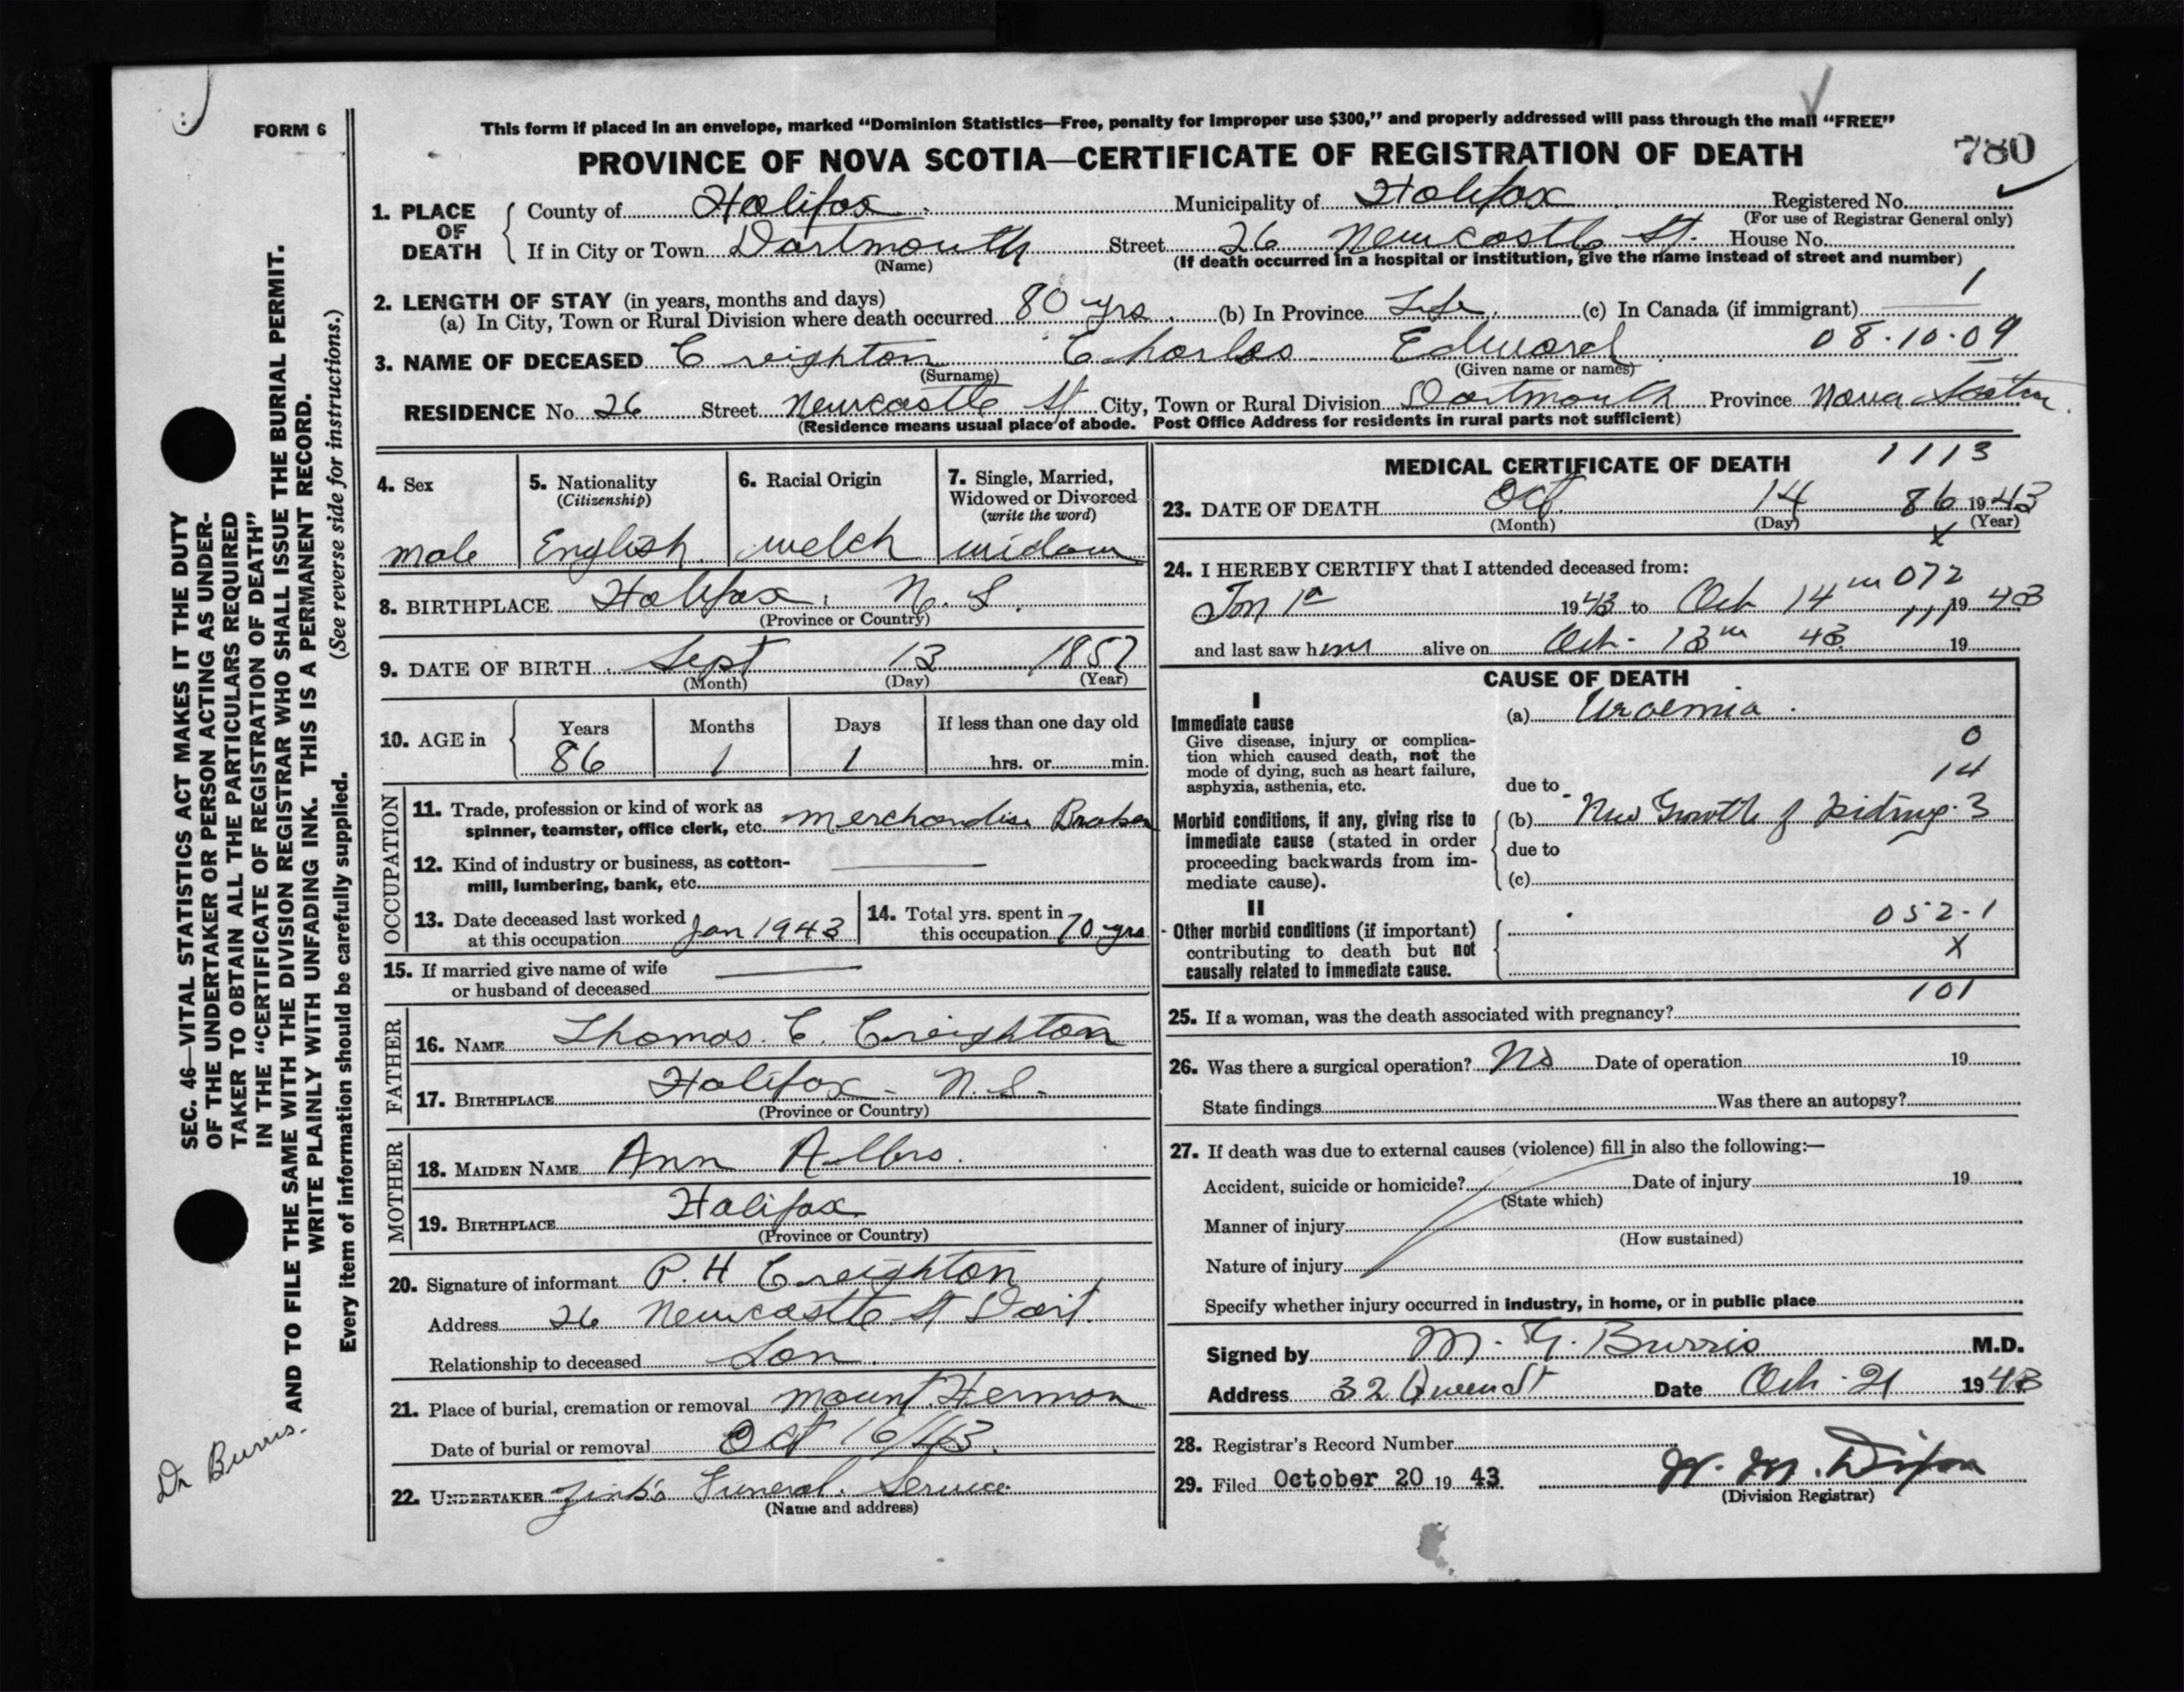 FORM 6
This form if placed in an envelope, marked “Dominion Statistics—Free, penalty for improper use $300,” and properly addressed will pass through the mail “FREE”
PROVINCE OF NOVA SCOTIA—CERTIFICATE OF REGISTRATION OF DEATH
780
1. PLACE OF DEATH
County of Halifax Municipality of Halifax Registered No.
(For use of Registrar General only)
If in City or Town Dartmouth Street 26 Newcastle St. House No.
(Name) (If death occurred in a hospital or institution, give the name instead of street and number)
2. LENGTH OF STAY (in years, months and days)
(a) In City, Town or Rural Division where death occurred 80 yrs. (b) In Province Life. (c) In Canada (if immigrant) 1
3. NAME OF DECEASED Creighton Charles Edward 08·10·09
(Surname) (Given name or names)
RESIDENCE No. 26 Street Newcastle St City, Town or Rural Division Dartmouth Province Nova Scotia.
(Residence means usual place of abode. Post Office Address for residents in rural parts not sufficient)
4. Sex
male
5. Nationality
(Citizenship)
English
6. Racial Origin
welch
7. Single, Married,
Widowed or Divorced
(write the word)
widow
8. BIRTHPLACE Halifax, N. S.
(Province or Country)
9. DATE OF BIRTH Sept 13 1857
(Month) (Day) (Year)
10. AGE in
Years Months Days If less than one day old
86 1 1 hrs. or min.
OCCUPATION
11. Trade, profession or kind of work as
spinner, teamster, office clerk, etc. merchandise Broker
12. Kind of industry or business, as cotton-
mill, lumbering, bank, etc.
13. Date deceased last worked
at this occupation Jan 1943
14. Total yrs. spent in
this occupation 70 yrs
15. If married give name of wife
or husband of deceased
FATHER
16. NAME Thomas. C. Creighton
17. BIRTHPLACE Halifax - N. S.
(Province or Country)
MOTHER
18. MAIDEN NAME Ann Albro.
19. BIRTHPLACE Halifax
(Province or Country)
20. Signature of informant P. H Creighton
Address 26 Newcastle St Dart.
Relationship to deceased Son.
21. Place of burial, cremation or removal Mount Hermon
Date of burial or removal Oct 16/43.
22. UNDERTAKER Zink's Funeral Service
(Name and address)
MEDICAL CERTIFICATE OF DEATH 1113
23. DATE OF DEATH Oct. 14 86 1943
(Month) (Day) (Year)
x
24. I HEREBY CERTIFY that I attended deceased from:
072
1943 to Oct 14th 1943
111
and last saw him alive on Oct. 13th 43. 19
CAUSE OF DEATH
I
Immediate cause
Give disease, injury or complica-
tion which caused death, not the
mode of dying, such as heart failure,
asphyxia, asthenia, etc.
(a) Uraemia.
0
14
due to
Morbid conditions, if any, giving rise to
immediate cause (stated in order
proceeding backwards from im-
mediate cause).
(b) New Growth of Kidney. 3
due to
(c)
II
Other morbid conditions (if important)
contributing to death but not
causally related to immediate cause.
052-1
X
101
25. If a woman, was the death associated with pregnancy?
26. Was there a surgical operation? No Date of operation 19
State findings Was there an autopsy?
27. If death was due to external causes (violence) fill in also the following:—
Accident, suicide or homicide? Date of injury 19
(State which)
Manner of injury
(How sustained)
Nature of injury
Specify whether injury occurred in industry, in home, or in public place
Signed by M. G. Burris M.D.
Address 32 Queen St Date Oct. 21 1943
28. Registrar's Record Number
29. Filed October 20 19 43 W. M. Dixon
(Division Registrar)
SEC. 46—VITAL STATISTICS ACT MAKES IT THE DUTY
OF THE UNDERTAKER OR PERSON ACTING AS UNDER-
TAKER TO OBTAIN ALL THE PARTICULARS REQUIRED
IN THE “CERTIFICATE OF REGISTRATION OF DEATH”
AND TO FILE THE SAME WITH THE DIVISION REGISTRAR WHO SHALL ISSUE THE BURIAL PERMIT.
WRITE PLAINLY WITH UNFADING INK. THIS IS A PERMANENT RECORD.
(See reverse side for instructions.)
Every item of information should be carefully supplied.
Dr Burris.